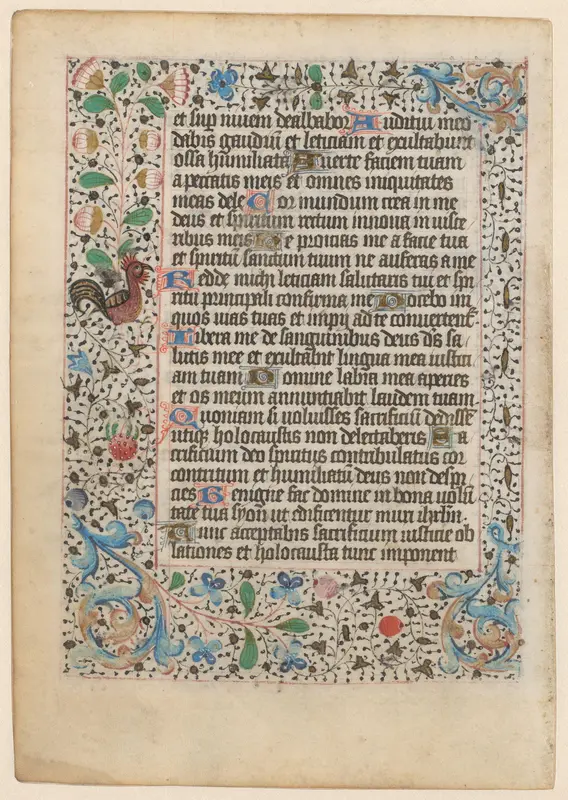 et sup nivem dealbabor Auditui meo
dabis gaudiū et leticiam et exultabunt
ossa humiliata Averte faciem tuam
a peccatis meis et omnes iniquitates
meas dele Cor mundum crea in me
deus et spiritum rectum innova in visce
ribus meis Ne proicias me a facie tua
et spiritū sanctum tuum ne auferas a me
Redde michi leticiam salutaris tui et spi
ritu principali confirma me Docebo ini
quos vias tuas et impii ad te convertent
Libera me de sanguinibus deus de͞s sa
lutis mee et exultabit lingua mea iustici
am tuam Domine labia mea aperies
et os meum annuntiabit laudem tuam
Quoniam si voluisses sacrificiū dedisse
utiqꝫ holocaustis non delectaberis Sa
crificium deo spiritus contribulatus cor
contritum et humiliatū deus non despi
cies Benigne fac domine in bona volū
tate tua syon ut edificentur muri ihrlm̄
Tunc acceptabis sacrificium iusticie ob
lationes et holocausta tunc imponent